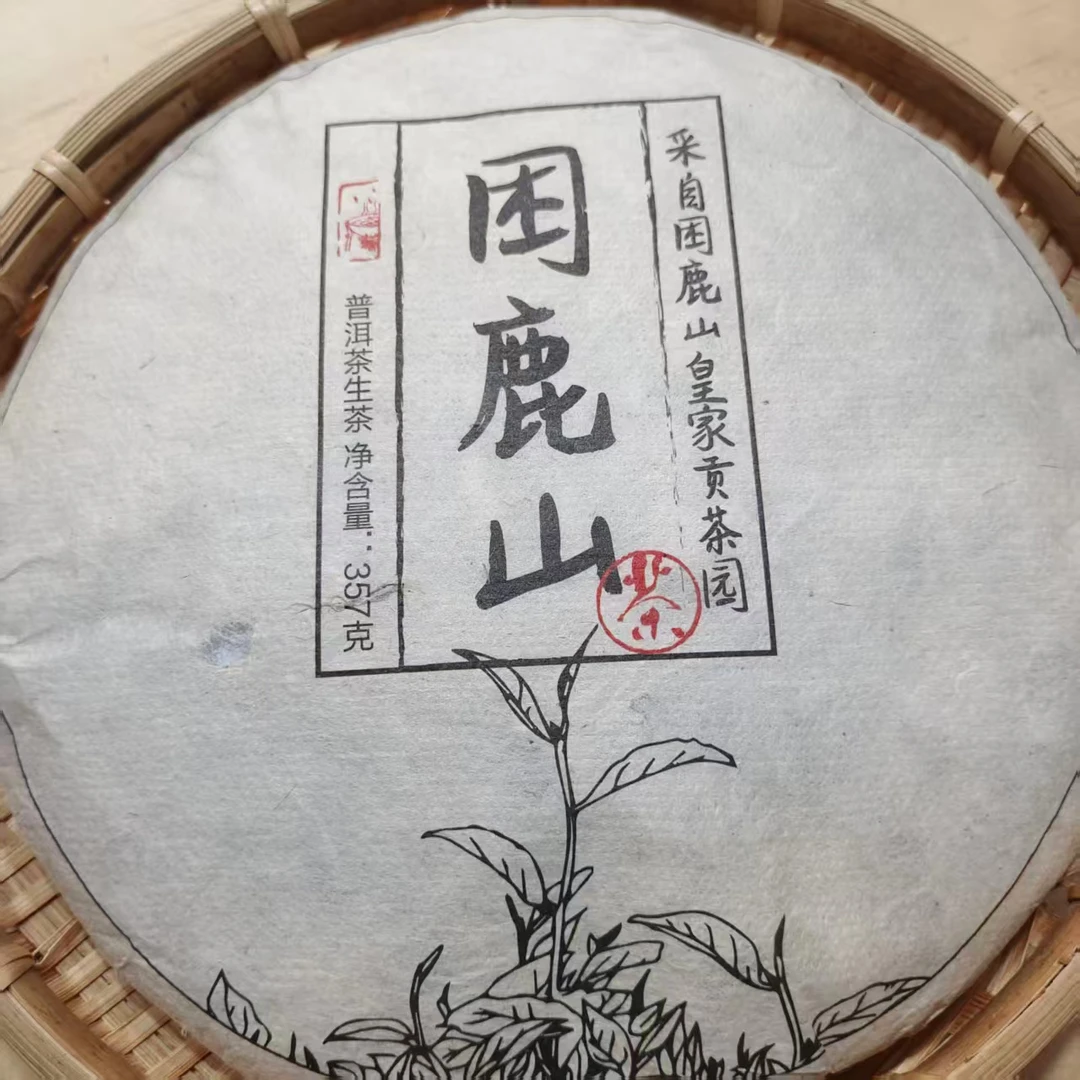 采自困鹿山皇家贡茶园
困鹿山
茶
普洱茶生茶 净含量：357克